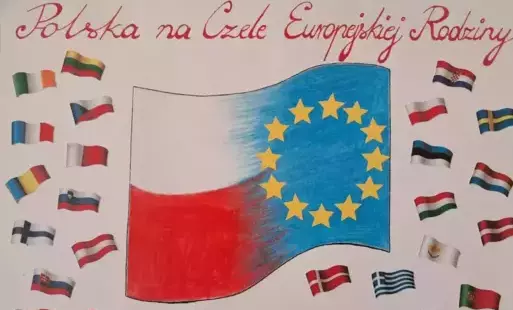 Polska na Czele Europejskiej Rodziny